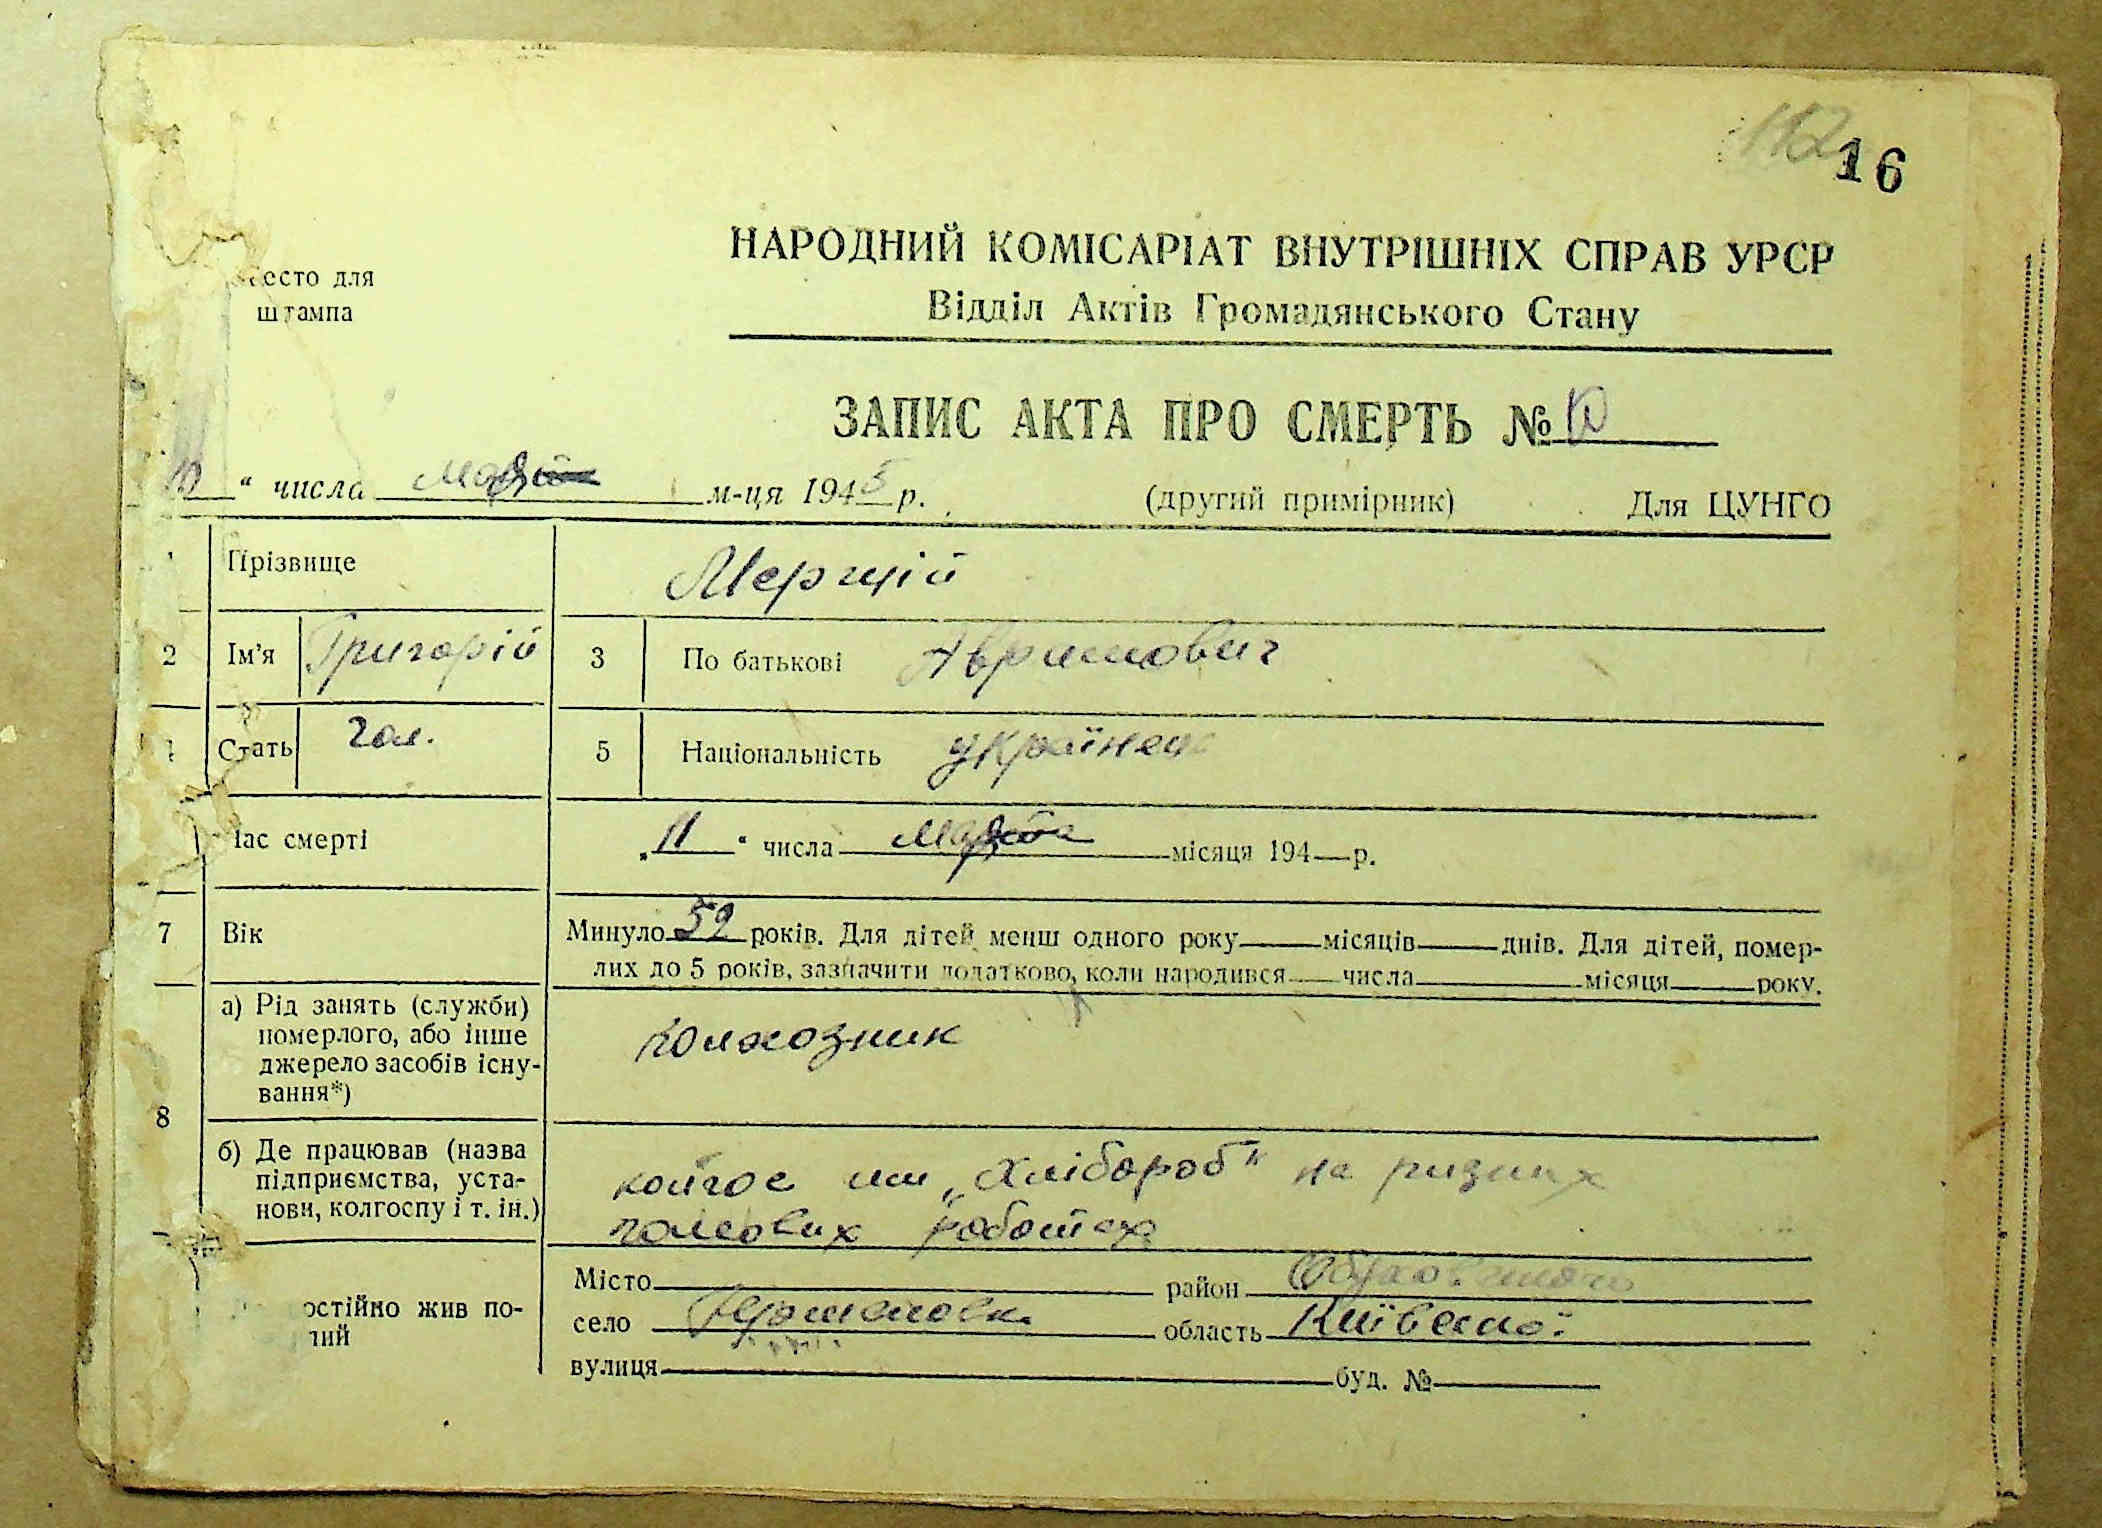 16
НАРОДНИЙ КОМІСАРІАТ ВНУТРІШНІХ СПРАВ УРСР
Відділ Актів Громадянського Стану
есто для
штампа
ЗАПИС АКТА ПРО СМЕРТЬ №
“ числа м-ця 1945 р. (другий примірник) Для ЦУНГО
Прізвище Мерщій
2 Ім'я Григорій 3 По батькові Аврамович
Стать чол. 5 Національність українець
час смерті „11“ числа місяця 194—р.
7 Вік Минуло 52 років. Для дітей менш одного року — місяців — днів. Для дітей, помер-
лих до 5 років, зазначити додатково, коли народився — числа — місяця — року.
8 а) Рід занять (служби)
померлого, або інше
джерело засобів існу-
вання*)
колхозник
б) Де працював (назва
підприємства, уста-
нови, колгоспу і т. ін.)
колгос им „Хлібороб" на ризних
полевих роботах
остійно жив по-
лий
Місто — район
село область Київської
вулиця — буд. № —